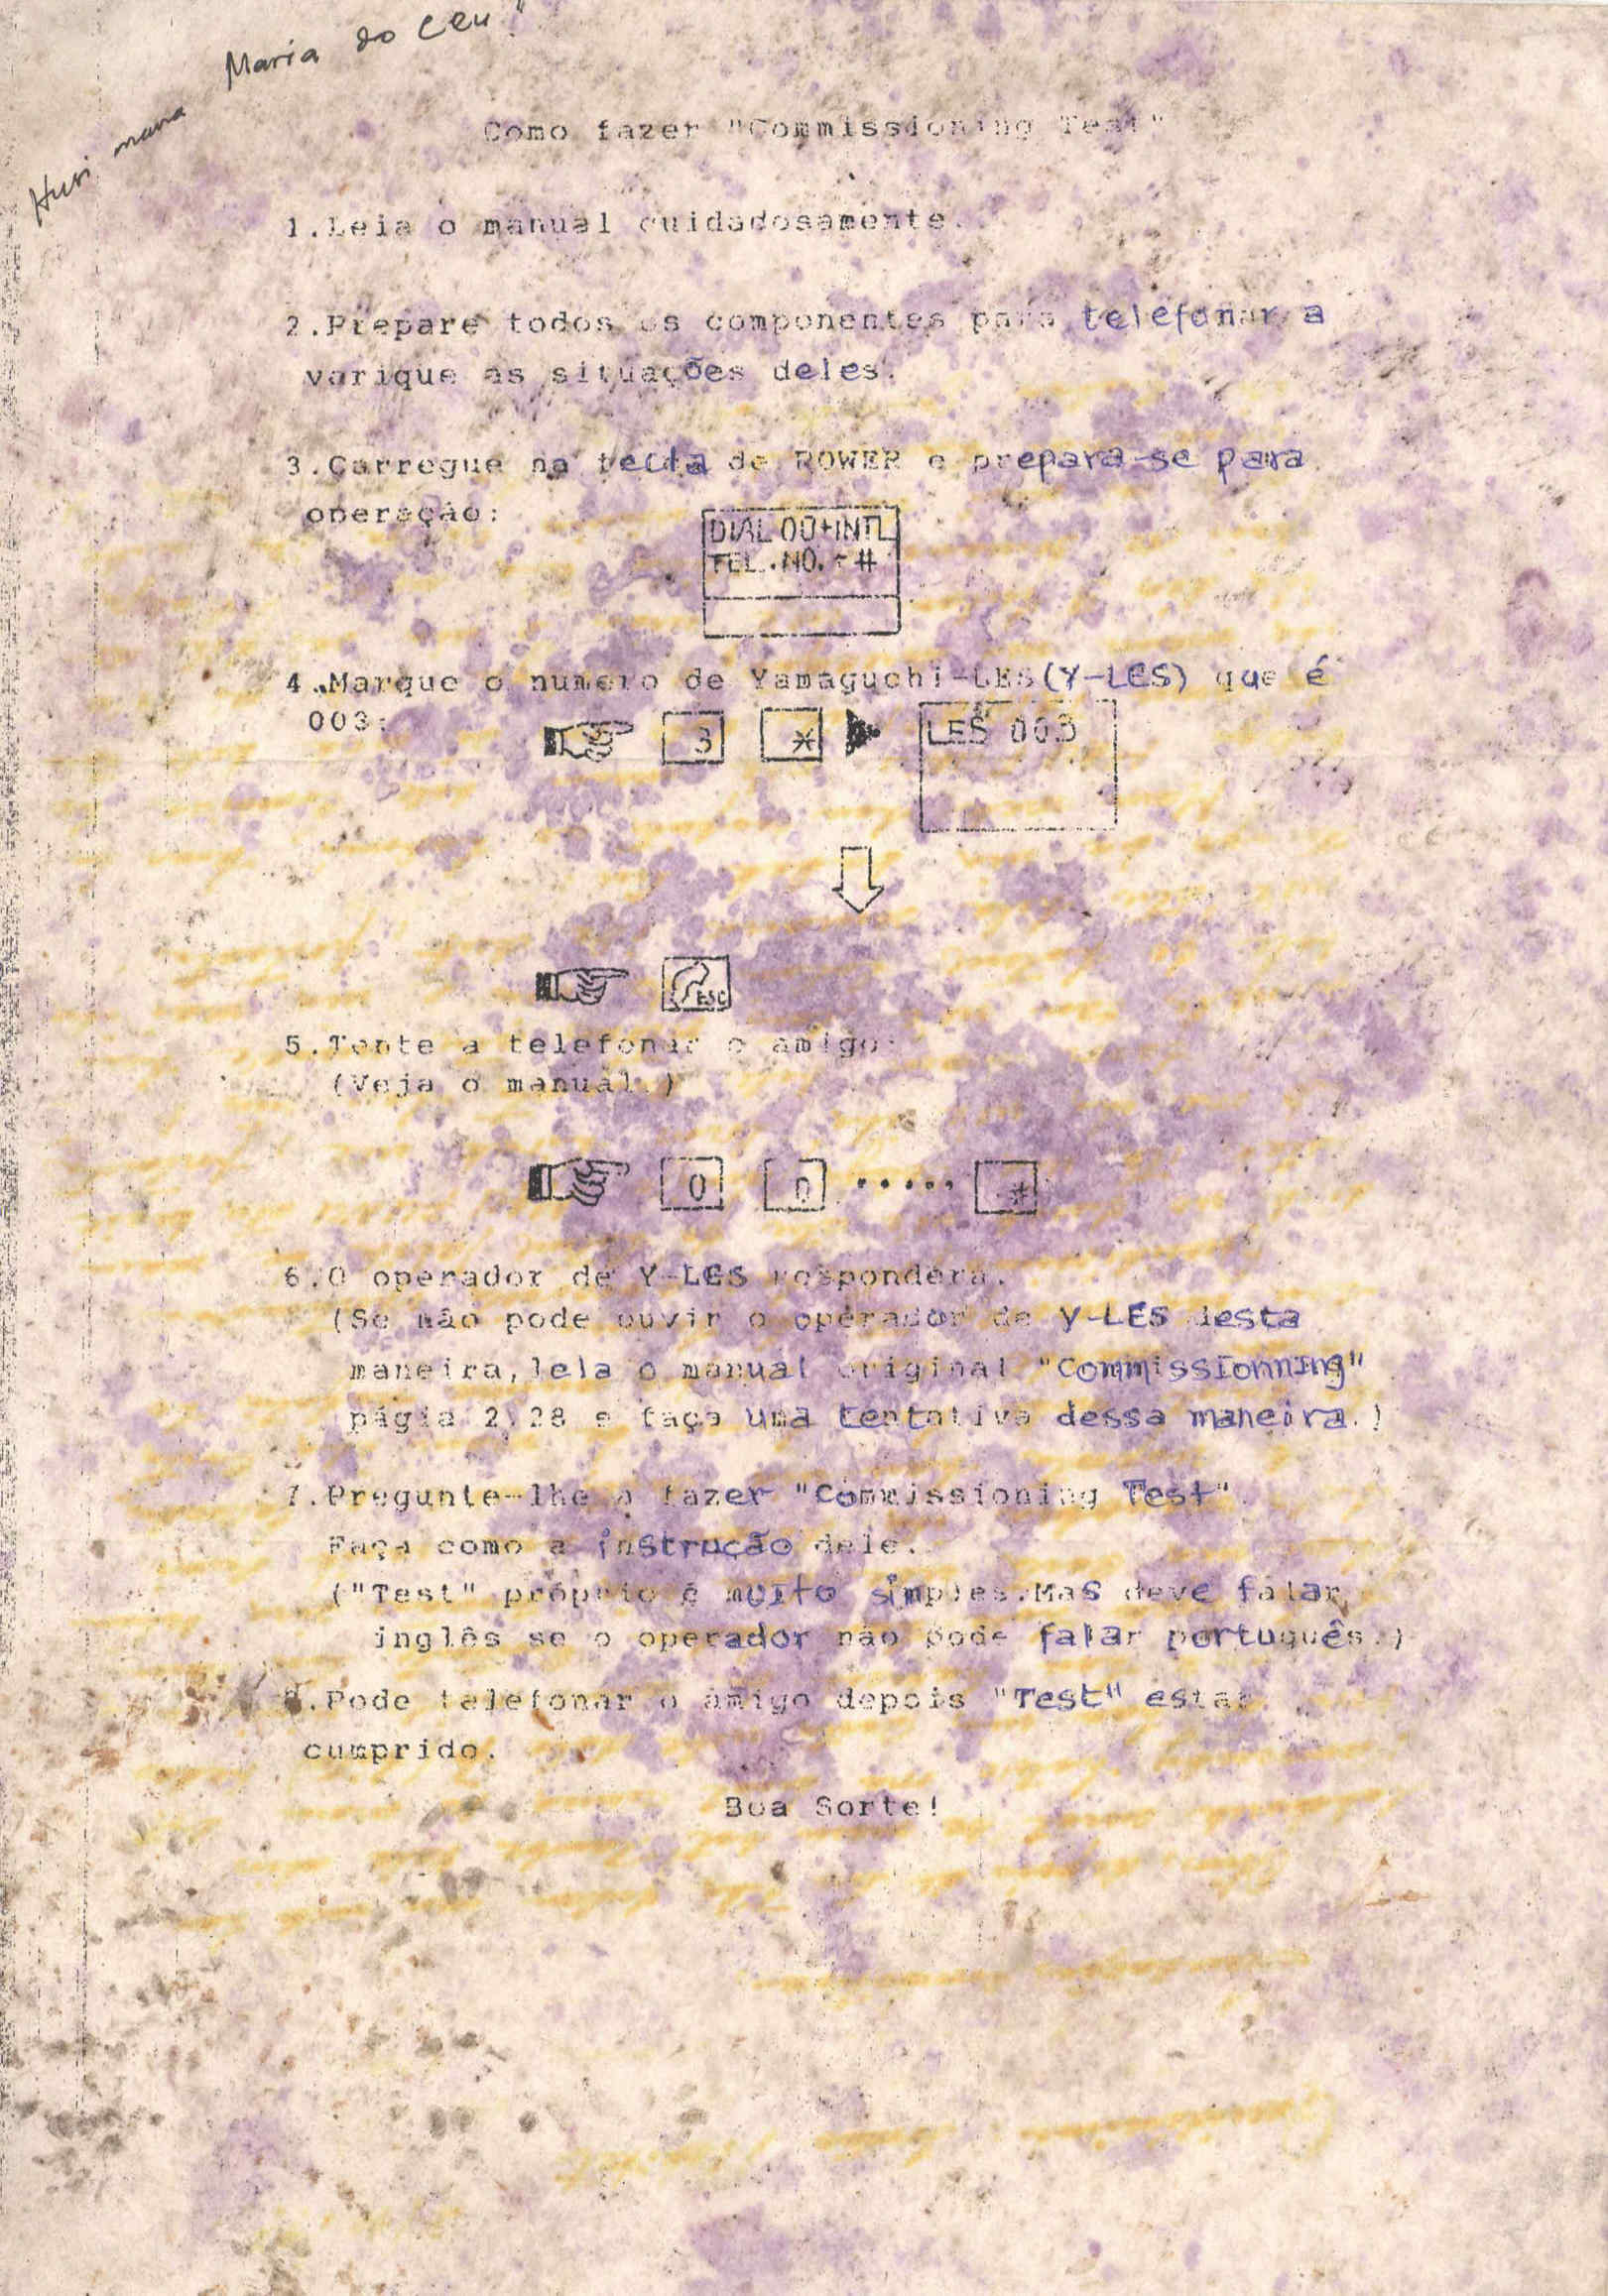 Husi mana Maria do Ceu!
Como fazer "Commissioning Test"
1.Leia o manual cuidadosamente.
2.Prepare todos os componentes para telefonar a
varique as situações deles.
3.Carregue na tecla de POWER e prepara-se para
operação:
DIAL 00+INTL
TEL.NO.+#
4.Marque o numero de Yamaguchi-LES(Y-LES) que é
003:
3 * LES 003
ESC
5.Tente a telefonar o amigo:
(Veja o manual.)
0 0 ..... #
6.O operador de Y-LES respondera.
(Se não pode ouvir o operador de Y-LES desta
maneira,leia o manual original "Commissionning"
págia 2.28 e faça uma tentativa dessa maneira.)
7.Pregunte-lhe a fazer "Commissioning Test".
Faça como a instrução dele.
("Test" próprio é muito simples.Mas deve falar
inglês se o operador não pode falar português.)
8.Pode telefonar o amigo depois "Test" estar
cumprido.
Boa Sorte!